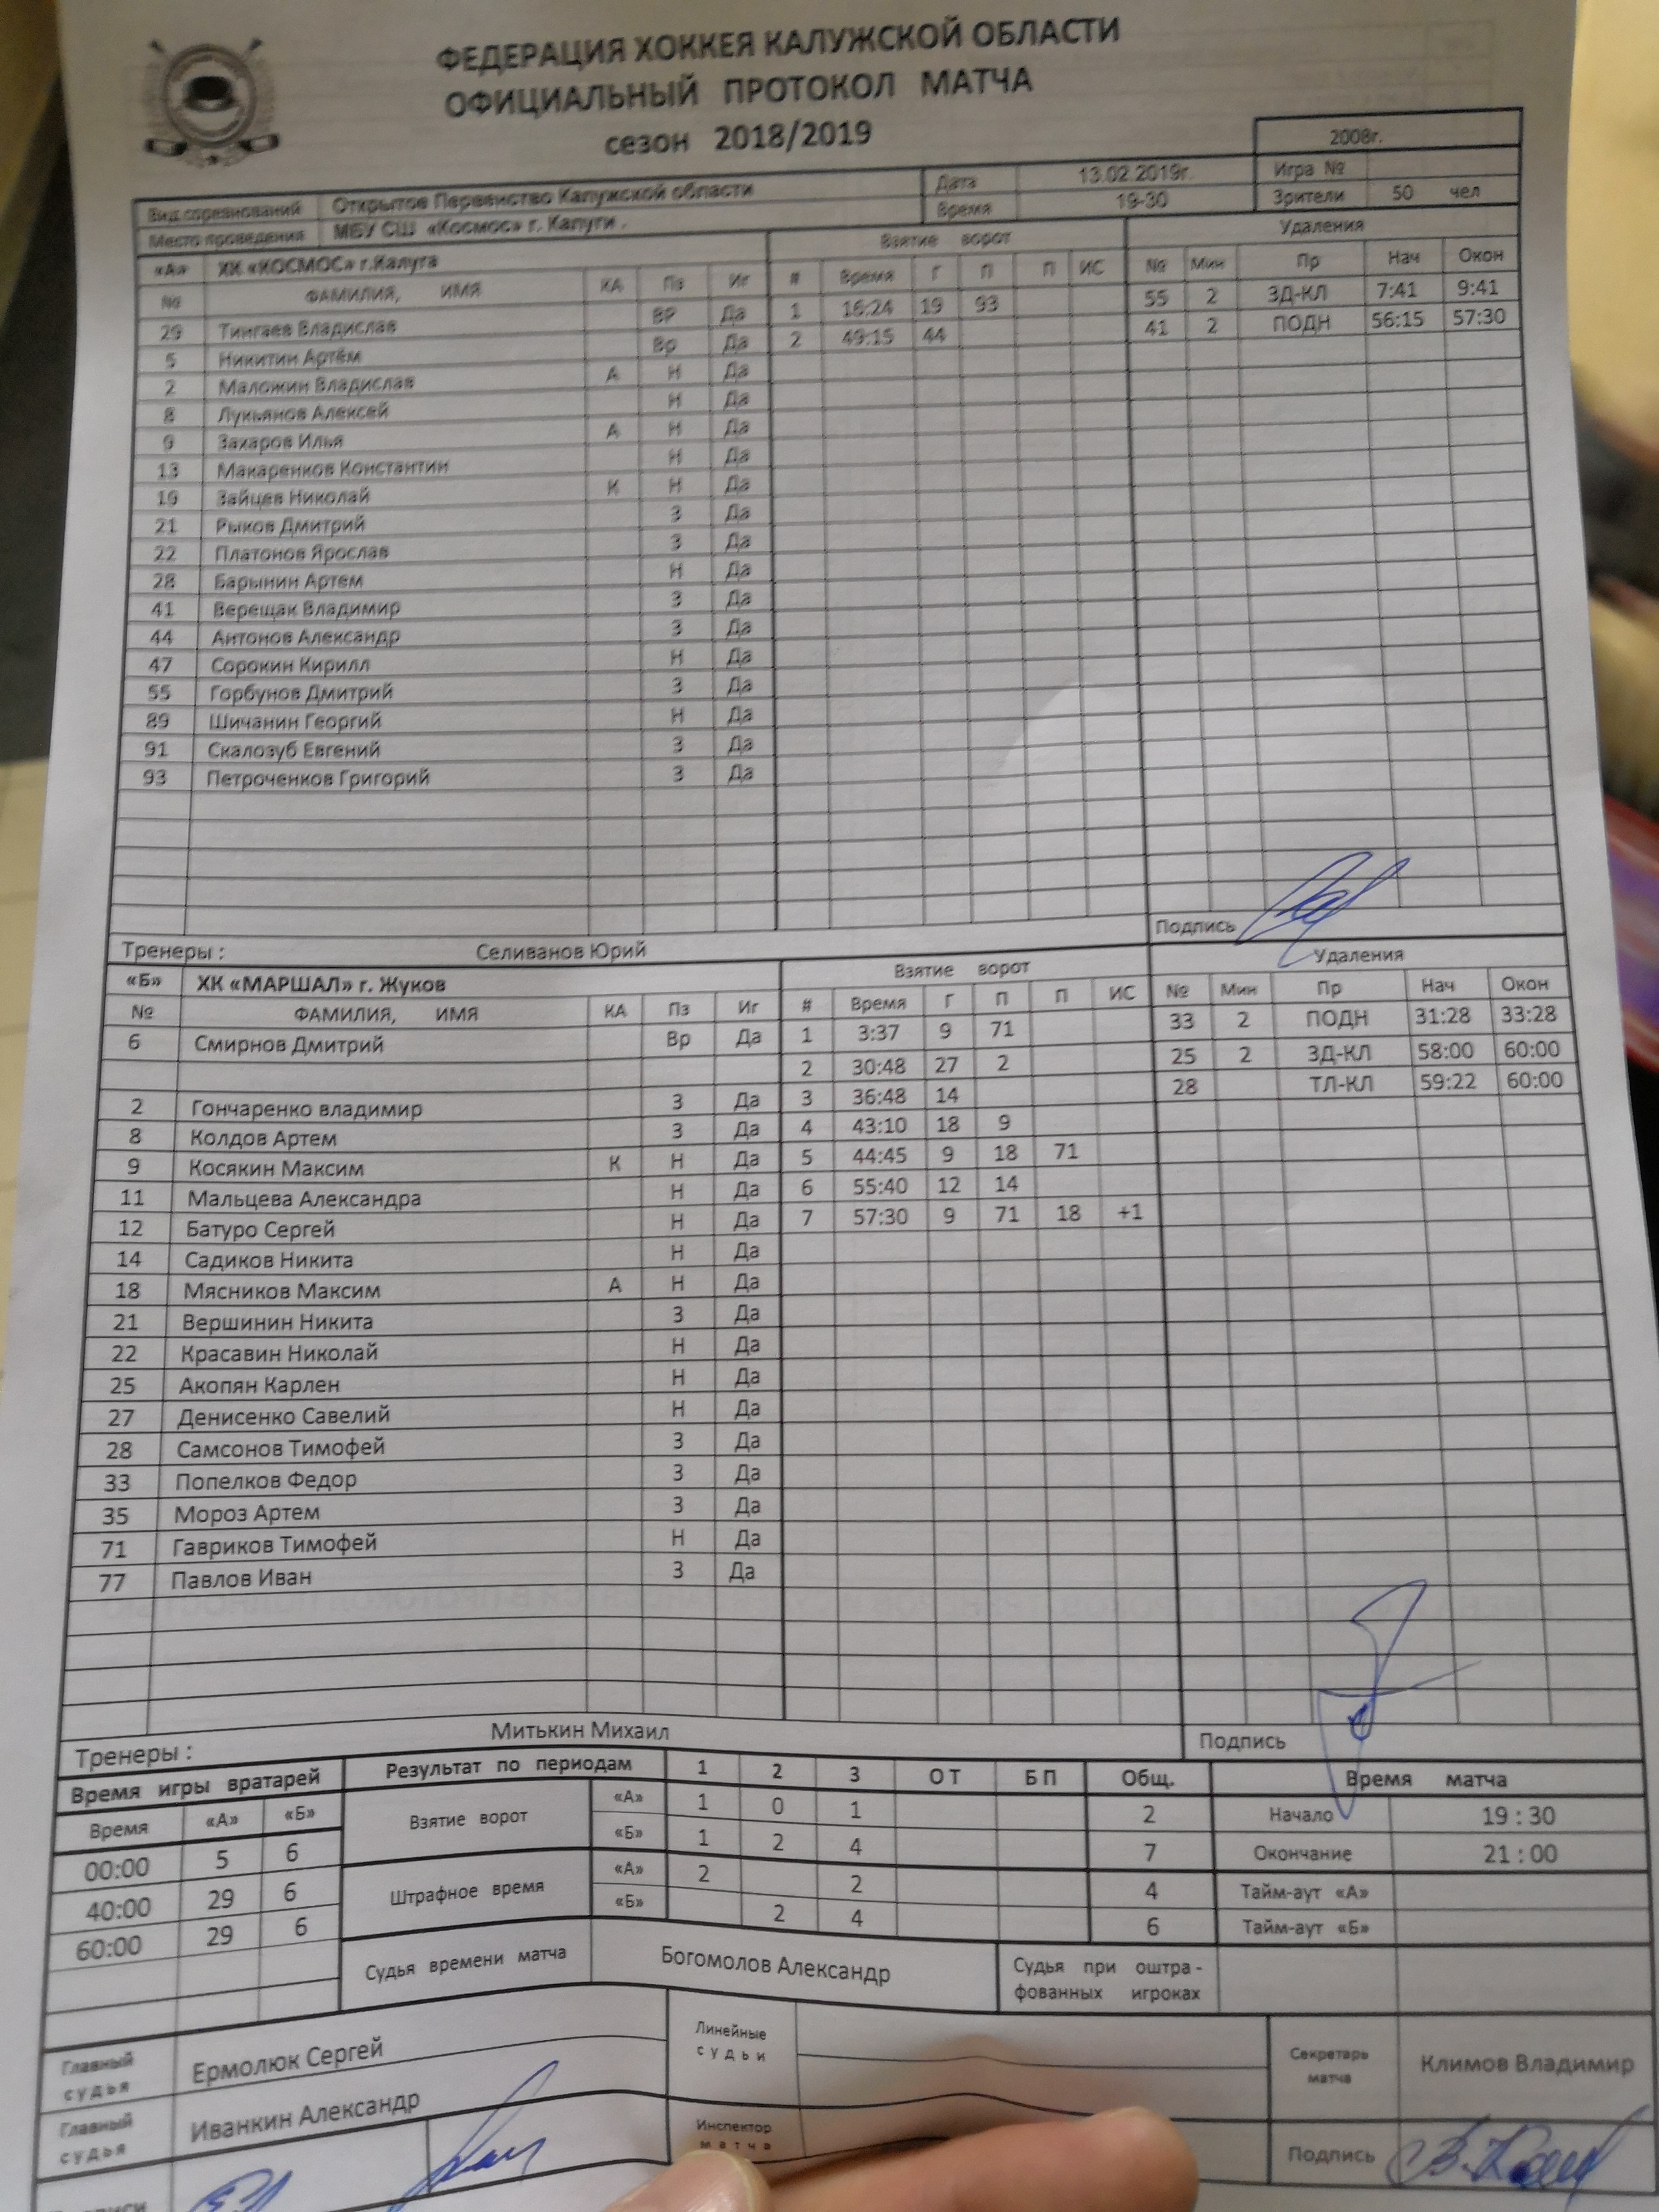 ФЕДЕРАЦИЯ ХОККЕЯ КАЛУЖСКОЙ ОБЛАСТИ
ОФИЦИАЛЬНЫЙ ПРОТОКОЛ МАТЧА
сезон 2018/2019
2008г.
Вид соревнований Открытое Первенство Калужской области Дата 13.02.2019г. Игра №
Место проведения МБУ СШ «Космос» г. Калуги . Время 19-30 Зрители 50 чел
«А» ХК «КОСМОС» г.Калуга Взятие ворот Удаления
№ ФАМИЛИЯ, ИМЯ КА Пз Иг # Время Г П П ИС № Мин Пр Нач Окон
29 Тингаев Владислав ВР Да 1 16:24 19 93 55 2 ЗД-КЛ 7:41 9:41
5 Никитин Артём Вр Да 2 49:15 44 41 2 ПОДН 56:15 57:30
2 Маложин Владислав А Н Да
8 Лукьянов Алексей Н Да
9 Захаров Илья А Н Да
13 Макаренков Константин Н Да
19 Зайцев Николай К Н Да
21 Рыков Дмитрий З Да
22 Платонов Ярослав З Да
28 Барынин Артем Н Да
41 Верещак Владимир З Да
44 Антонов Александр З Да
47 Сорокин Кирилл Н Да
55 Горбунов Дмитрий З Да
89 Шичанин Георгий Н Да
91 Скалозуб Евгений З Да
93 Петроченков Григорий З Да
Тренеры : Селиванов Юрий Подпись
«Б» ХК «МАРШАЛ» г. Жуков Взятие ворот Удаления
№ ФАМИЛИЯ, ИМЯ КА Пз Иг # Время Г П П ИС № Мин Пр Нач Окон
6 Смирнов Дмитрий Вр Да 1 3:37 9 71 33 2 ПОДН 31:28 33:28
2 30:48 27 2 25 2 ЗД-КЛ 58:00 60:00
2 Гончаренко владимир З Да 3 36:48 14 28 ТЛ-КЛ 59:22 60:00
8 Колдов Артем З Да 4 43:10 18 9
9 Косякин Максим К Н Да 5 44:45 9 18 71
11 Мальцева Александра Н Да 6 55:40 12 14
12 Батуро Сергей Н Да 7 57:30 9 71 18 +1
14 Садиков Никита Н Да
18 Мясников Максим А Н Да
21 Вершинин Никита З Да
22 Красавин Николай Н Да
25 Акопян Карлен Н Да
27 Денисенко Савелий Н Да
28 Самсонов Тимофей З Да
33 Попелков Федор З Да
35 Мороз Артем З Да
71 Гавриков Тимофей Н Да
77 Павлов Иван З Да
Тренеры : Митькин Михаил Подпись
Время игры вратарей Результат по периодам 1 2 3 ОТ БП Общ. Время матча
Время «А» «Б» Взятие ворот «А» 1 0 1 2 Начало 19 : 30
00:00 5 6 «Б» 1 2 4 7 Окончание 21 : 00
40:00 29 6 Штрафное время «А» 2 2 4 Тайм-аут «А»
60:00 29 6 «Б» 2 4 6 Тайм-аут «Б»
Судья времени матча Богомолов Александр Судья при оштра-
фованных игроках
Главный судья Ермолюк Сергей Линейные судьи Секретарь матча Климов Владимир
Главный судья Иванкин Александр Инспектор матча Подпись